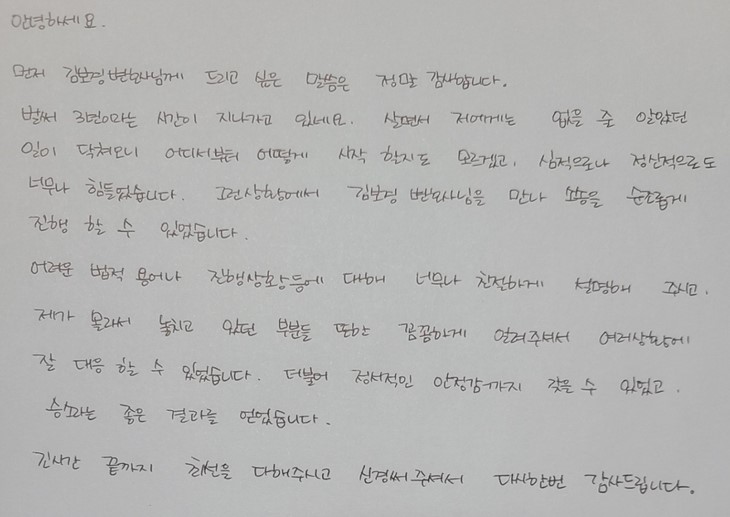 안녕하세요.
먼저 김보경변호사님께 드리고 싶은 말씀은 정말 감사합니다.
벌써 3년이라는 시간이 지나가고 있네요. 살면서 저에게는 없을 줄 알았던
일이 닥쳐오니 어디서부터 어떻게 시작 할지도 모르겠고, 심적으로나 정신적으로도
너무나 힘들었습니다. 그런상황에서 김보경 변호사님을 만나 소송을 순조롭게
진행 할 수 있었습니다.
어려운 법적 용어나 진행상황등에 대해 너무나 친절하게 설명해 주시고,
제가 몰라서 놓치고 있던 부분들 또한 꼼꼼하게 알려주셔서 여러상황에
잘 대응 할 수 있었습니다. 더불어 정서적인 안정감까지 갖을 수 있었고,
승소라는 좋은 결과를 얻었습니다.
긴시간 끝까지 최선을 다해주시고 신경써주셔서 다시한번 감사드립니다.